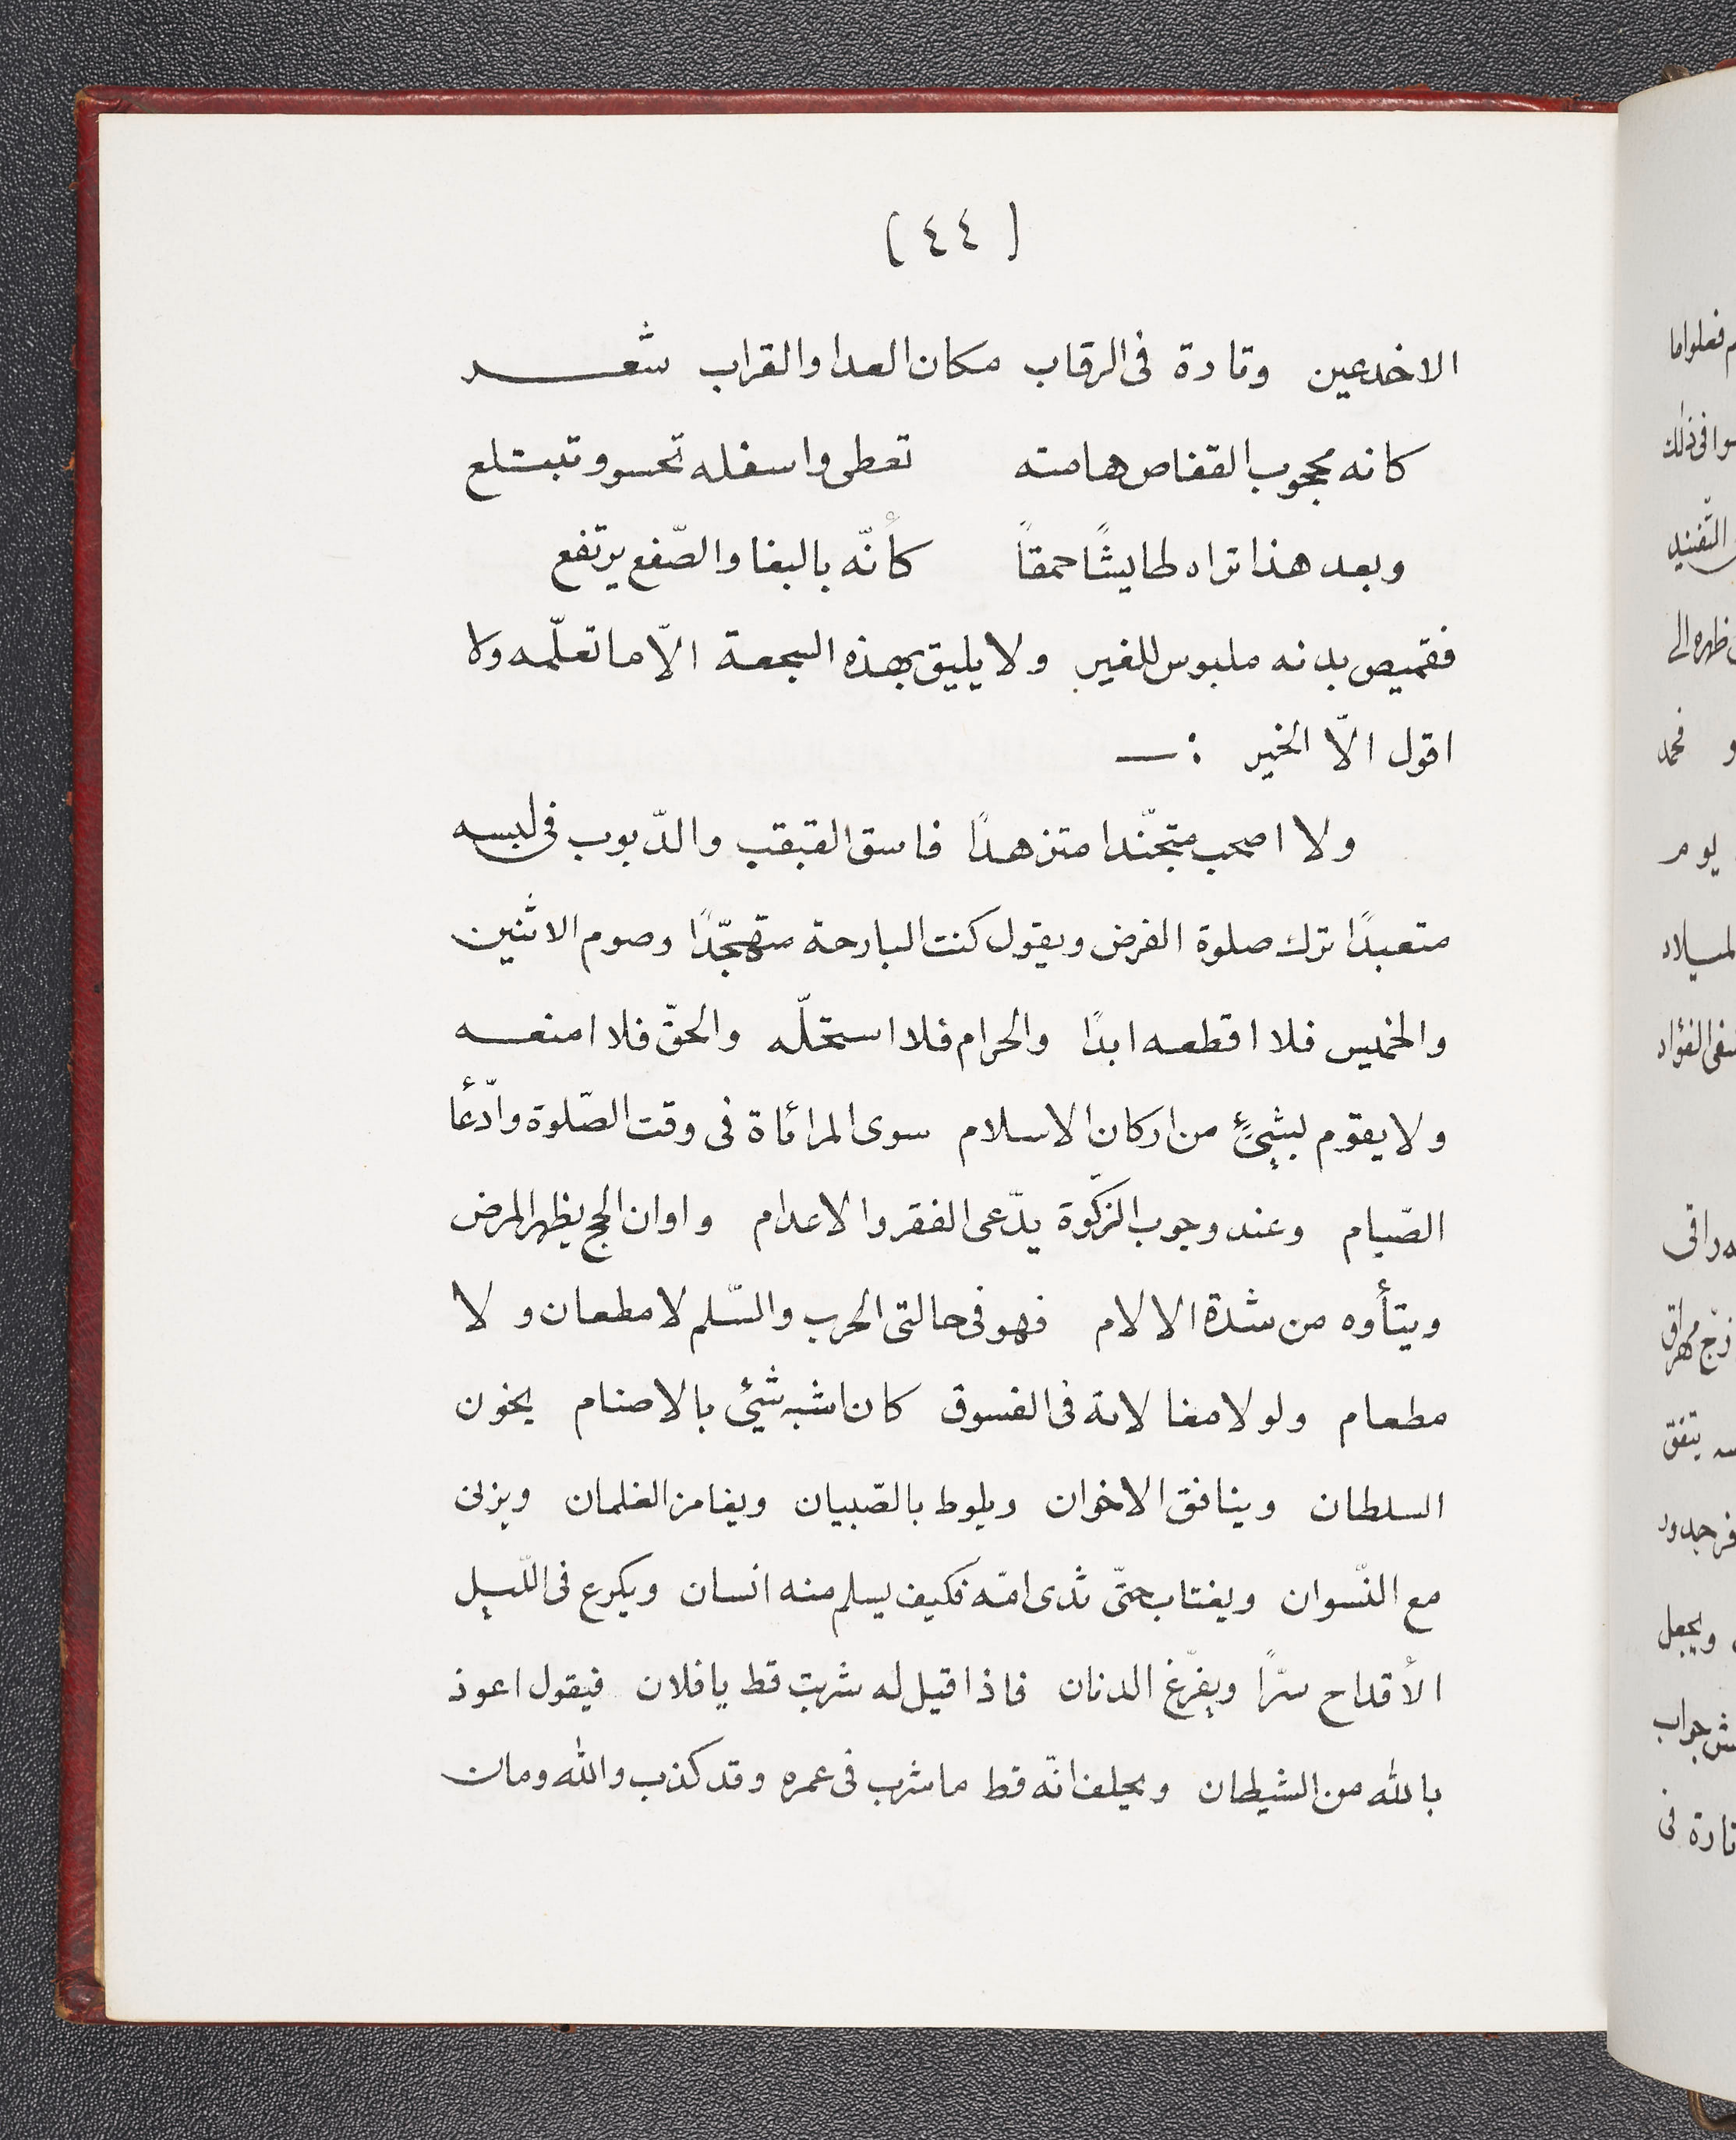 (٤٤)
الاخدعين وتارة فى الرقاب مكان العدا والقراب شعـــر
كانه مجوب القفاص هامته تعطى واسفله تحسو وتبتلع
وبعد هذا تراه طايشًا حمقًا كأنّه بالبغا والصّفع يرتفع
فقميص بدنه ملبوس للغير ولا يليق بهذه السجعة الّا ما تعلّمه ولا
اقول الّا الخير :—
ولا اصحب متجنّدا متزهدًا فاسق القبقب والدّبوب فى لبسه
متعبدًا ترك صلوة الفرض ويقول كنت البارحة متهجّدًا وصوم الاثنين
والخميس فلا اقطعه ابدًا والحرام فلا استحلّه والحقّ فلا امنعه
ولا يقوم بشئٍ من اركان الاسلام سوى المرائاة فى وقت الصّلوة وادّعأ
الصّيام وعند وجوب الزّكوة يدّعى الفقر والاعدام واوان الحج يظهر المرض
ويتأوه من شدّة الالام فهو فى حالتى الحرب والسّلم لا مطعان ولا
مطعام ولولا مغالاته فى الفسوق كان اشبه شيئ بالاصنام يخون
السلطان وينافق الاخوان ويلوط بالصّبيان ويغامز الغلمان ويزنى
مع النّسوان ويغتاب حتّى ثدى امّه فكيف يسلم منه انسان ويكرع فى اللّيل
الأقداح سرّا ويفرّغ الدنان فاذا قيل له شربت قط يا فلان فيقول اعوذ
بالله من الشيطان ويحلف انّه قط ما شرب فى عمره وقد كذب والله ومان